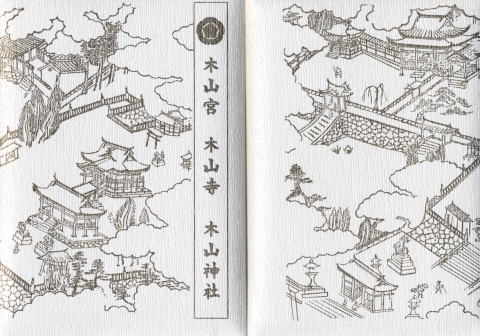 木山宮 木山寺 木山神社